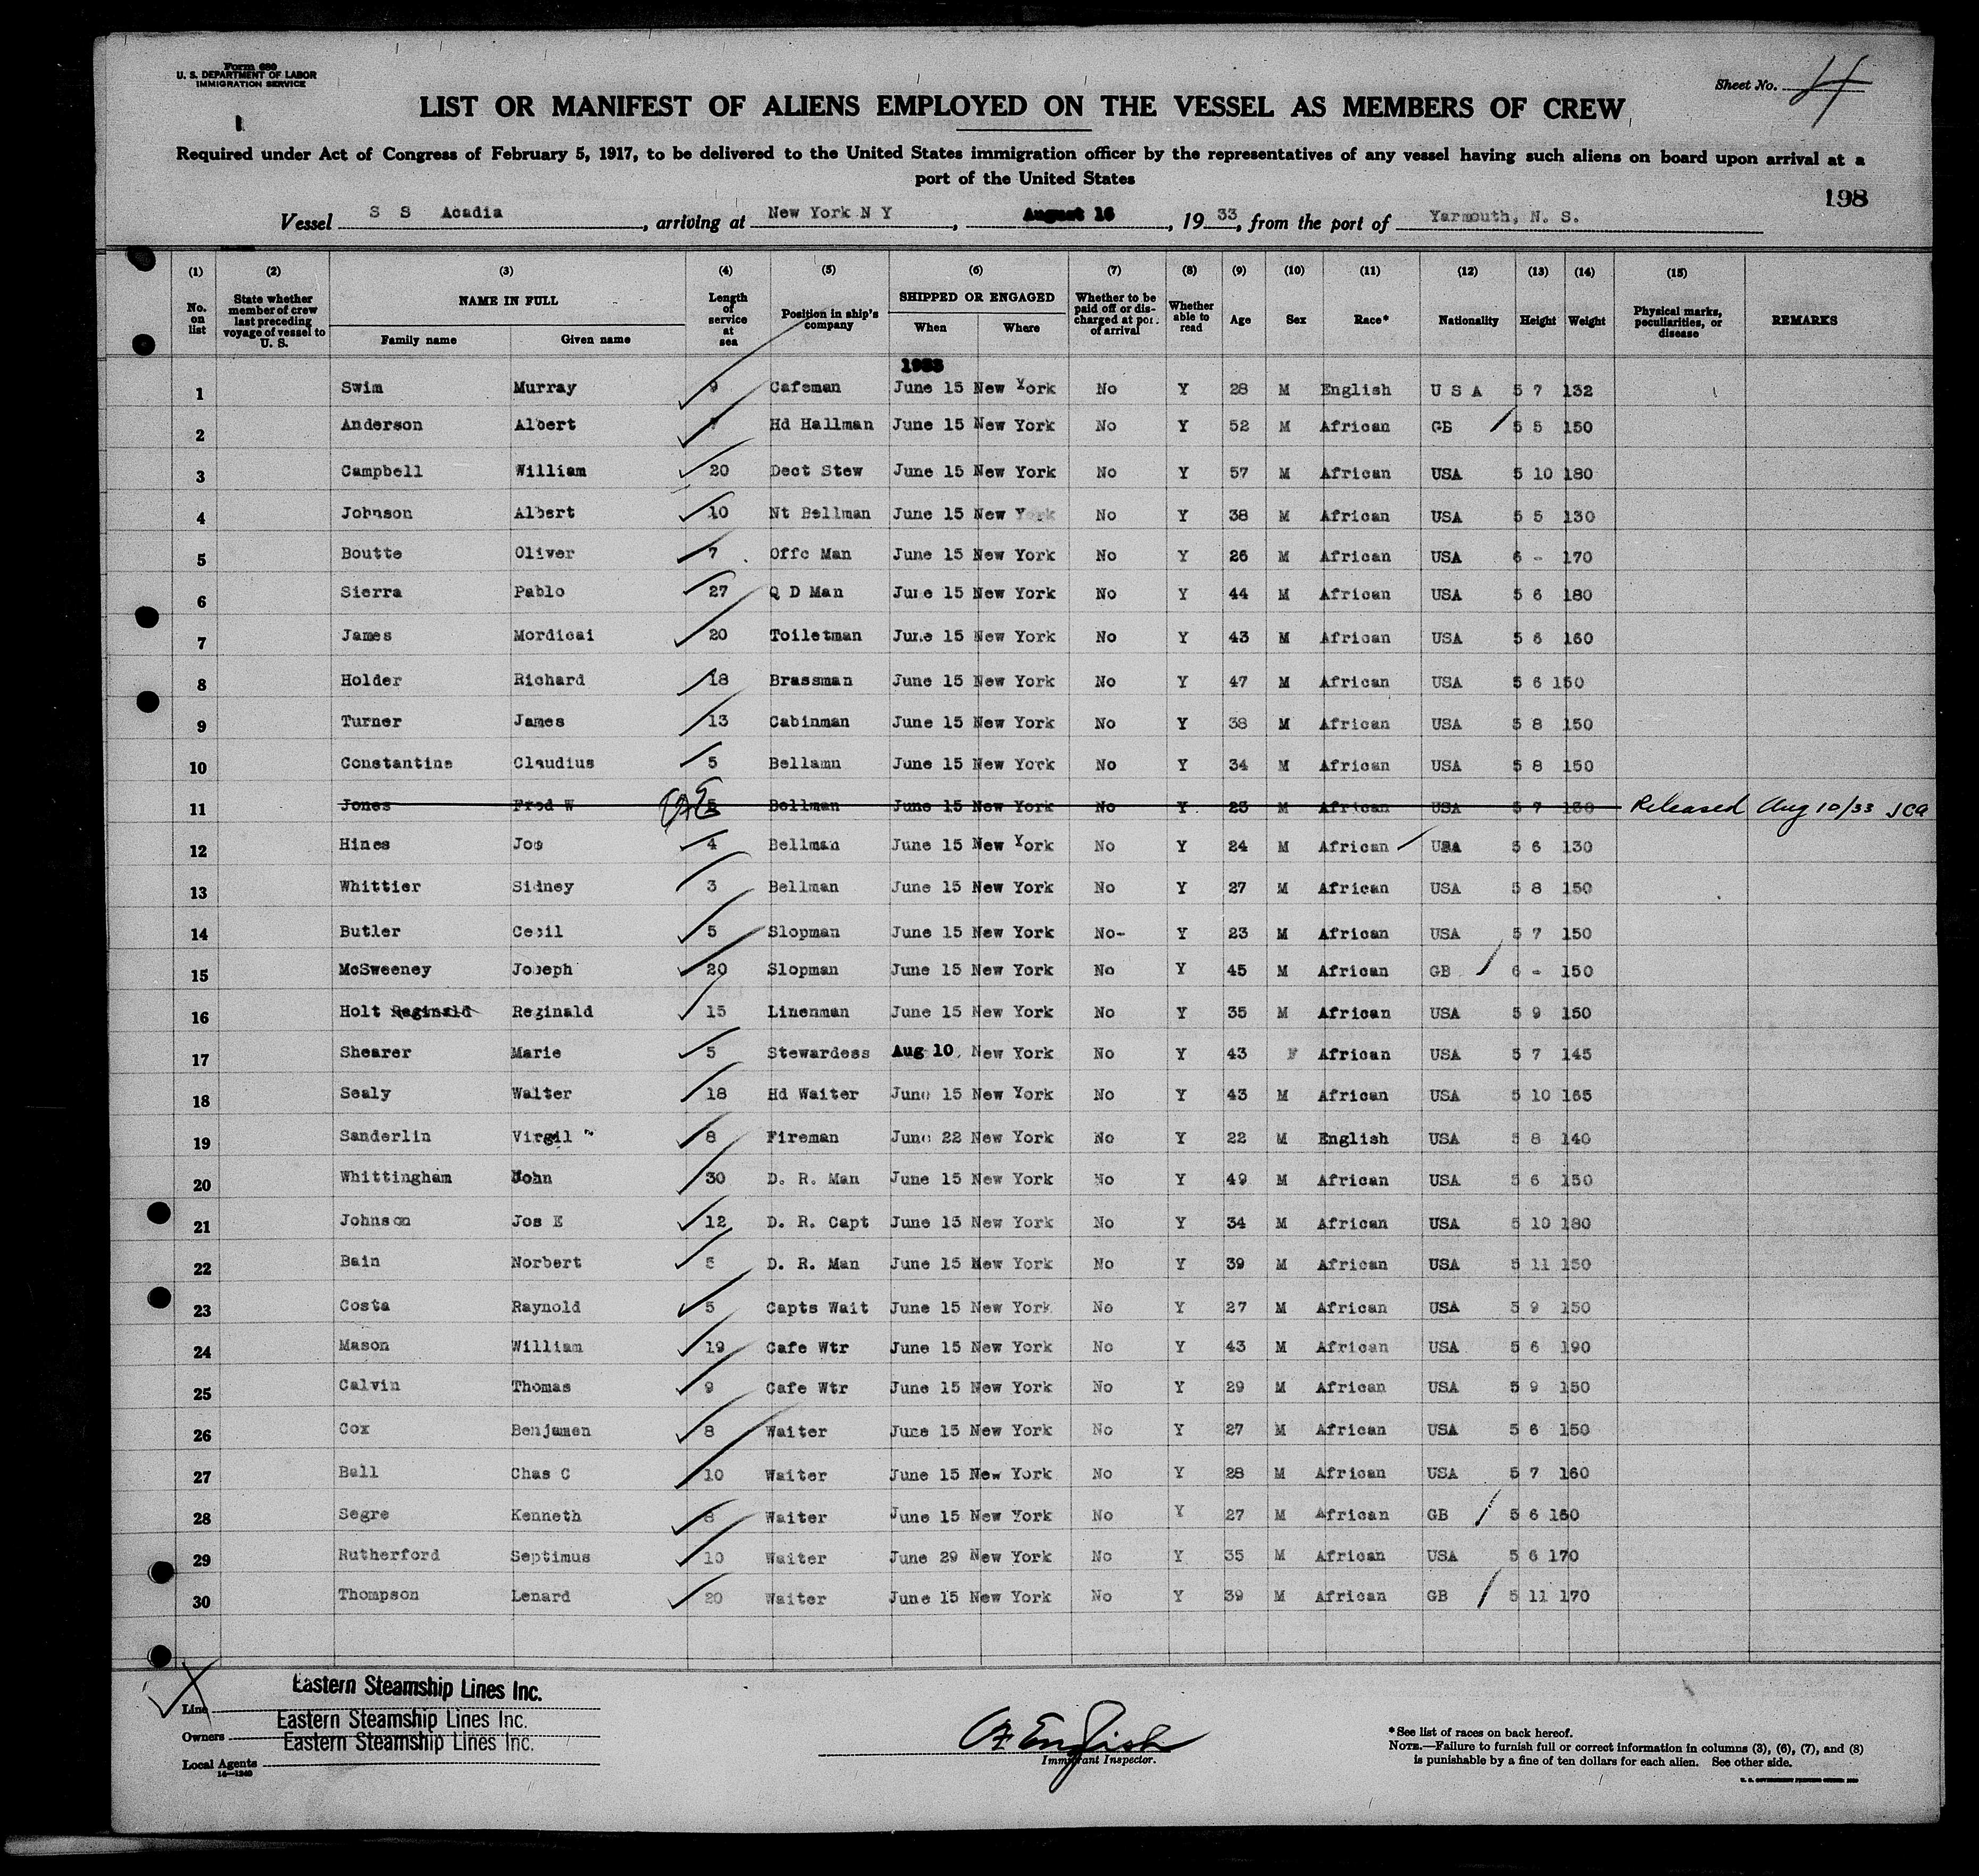 Form 680
U. S. DEPARTMENT OF LABOR
IMMIGRATION SERVICE
Sheet No. 4
LIST OR MANIFEST OF ALIENS EMPLOYED ON THE VESSEL AS MEMBERS OF CREW
Required under Act of Congress of February 5, 1917, to be delivered to the United States immigration officer by the representatives of any vessel having such aliens on board upon arrival at a
port of the United States
198
Vessel S S Acadia, arriving at New York N Y, August 16, 1933, from the port of Yarmouth, N. S.
(1) (2) (3) (4) (5) (6) (7) (8) (9) (10) (11) (12) (13) (14) (15)
No. on list State whether member of crew last preceding voyage of vessel to U. S. NAME IN FULL Family name Given name Length of service at sea Position in ship's company SHIPPED OR ENGAGED When Where Whether to be paid off or discharged at port of arrival Whether able to read Age Sex Race* Nationality Height Weight Physical marks, peculiarities, or disease REMARKS
1933
1 Swim Murray 9 Cafeman June 15 New York No Y 28 M English U S A 5 7 132
2 Anderson Albert Hd Hallman June 15 New York No Y 52 M African GB 5 5 150
3 Campbell William 20 Dect Stew June 15 New York No Y 57 M African USA 5 10 180
4 Johnson Albert 10 Nt Bellman June 15 New York No Y 38 M African USA 5 5 130
5 Boutte Oliver 7 Offc Man June 15 New York No Y 26 M African USA 6 - 170
6 Sierra Pablo 27 Q D Man June 15 New York No Y 44 M African USA 5 6 180
7 James Mordicai 20 Toiletman June 15 New York No Y 43 M African USA 5 6 160
8 Holder Richard 18 Brassman June 15 New York No Y 47 M African USA 5 6 150
9 Turner James 13 Cabinman June 15 New York No Y 38 M African USA 5 8 150
10 Constantine Claudius 5 Bellamn June 15 New York No Y 34 M African USA 5 8 150
11 Jones Fred W 5 Bellman June 15 New York No Y 23 M African USA 5 7 130 Released Aug 10/33 JCA
12 Hines Jos 4 Bellman June 15 New York No Y 24 M African USA 5 6 130
13 Whittier Sidney 3 Bellman June 15 New York No Y 27 M African USA 5 8 150
14 Butler Cecil 5 Slopman June 15 New York No- Y 23 M African USA 5 7 150
15 McSweeney Joseph 20 Slopman June 15 New York No Y 45 M African GB 6 - 150
16 Holt Reginald Reginald 15 Linenman June 15 New York No Y 35 M African USA 5 9 150
17 Shearer Marie 5 Stewardess Aug 10 New York No Y 43 F African USA 5 7 145
18 Sealy Walter 18 Hd Waiter June 15 New York No Y 43 M African USA 5 10 165
19 Sanderlin Virgil 8 Fireman June 22 New York No Y 22 M English USA 5 8 140
20 Whittingham John 30 D. R. Man June 15 New York No Y 49 M African USA 5 6 150
21 Johnson Jos E 12 D. R. Capt June 15 New York No Y 34 M African USA 5 10 180
22 Bain Norbert 5 D. R. Man June 15 New York No Y 39 M African USA 5 11 150
23 Costa Raynold 5 Capts Wait June 15 New York No Y 27 M African USA 5 9 150
24 Mason William 19 Cafe Wtr June 15 New York No Y 43 M African USA 5 6 190
25 Calvin Thomas 9 Cafe Wtr June 15 New York No Y 29 M African USA 5 9 150
26 Cox Benjamen 8 Waiter June 15 New York No Y 27 M African USA 5 6 150
27 Ball Chas C 10 Waiter June 15 New York No Y 28 M African USA 5 7 160
28 Segre Kenneth 8 Waiter June 15 New York No Y 27 M African GB 5 6 160
29 Rutherford Septimus 10 Waiter June 29 New York No Y 35 M African USA 5 6 170
30 Thompson Lenard 20 Waiter June 15 New York No Y 39 M African GB 5 11 170
Line Eastern Steamship Lines Inc.
Owners Eastern Steamship Lines Inc.
Local Agents Eastern Steamship Lines Inc.
14—1240
English
Immigrant Inspector.
*See list of races on back hereof.
NOTE.—Failure to furnish full or correct information in columns (3), (6), (7), and (8)
is punishable by a fine of ten dollars for each alien. See other side.